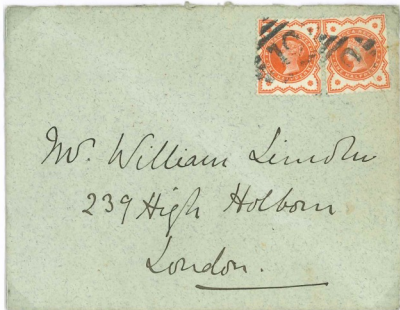 Mr. William Lincoln
239 High Holborn
London.